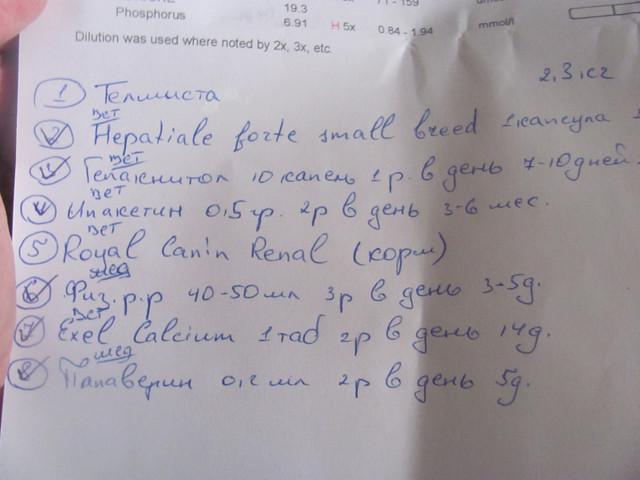 19.3
Phosphorus 6.91 H 5x 0.84 - 1.94 mmol/l
Dilution was used where noted by 2x, 3x, etc.
2,3 кг
1 Телмиста
вет
2 Hepatiale forte small breed 1 капсула
вет
3 Гепакнитол 10 капель 1 р. в день 7-10 дней.
вет
4 Ипакетин 0,5 гр. 2р в день 3-6 мес.
вет
5 Royal Canin Renal (корм)
мед
6 Физ. р.р 40-50 мл 3р в день 3-5д.
вет
7 Exel Calcium 1 таб 2р в день 14д.
мед
8 Папаверин 0,2 мл 2р в день 5д.